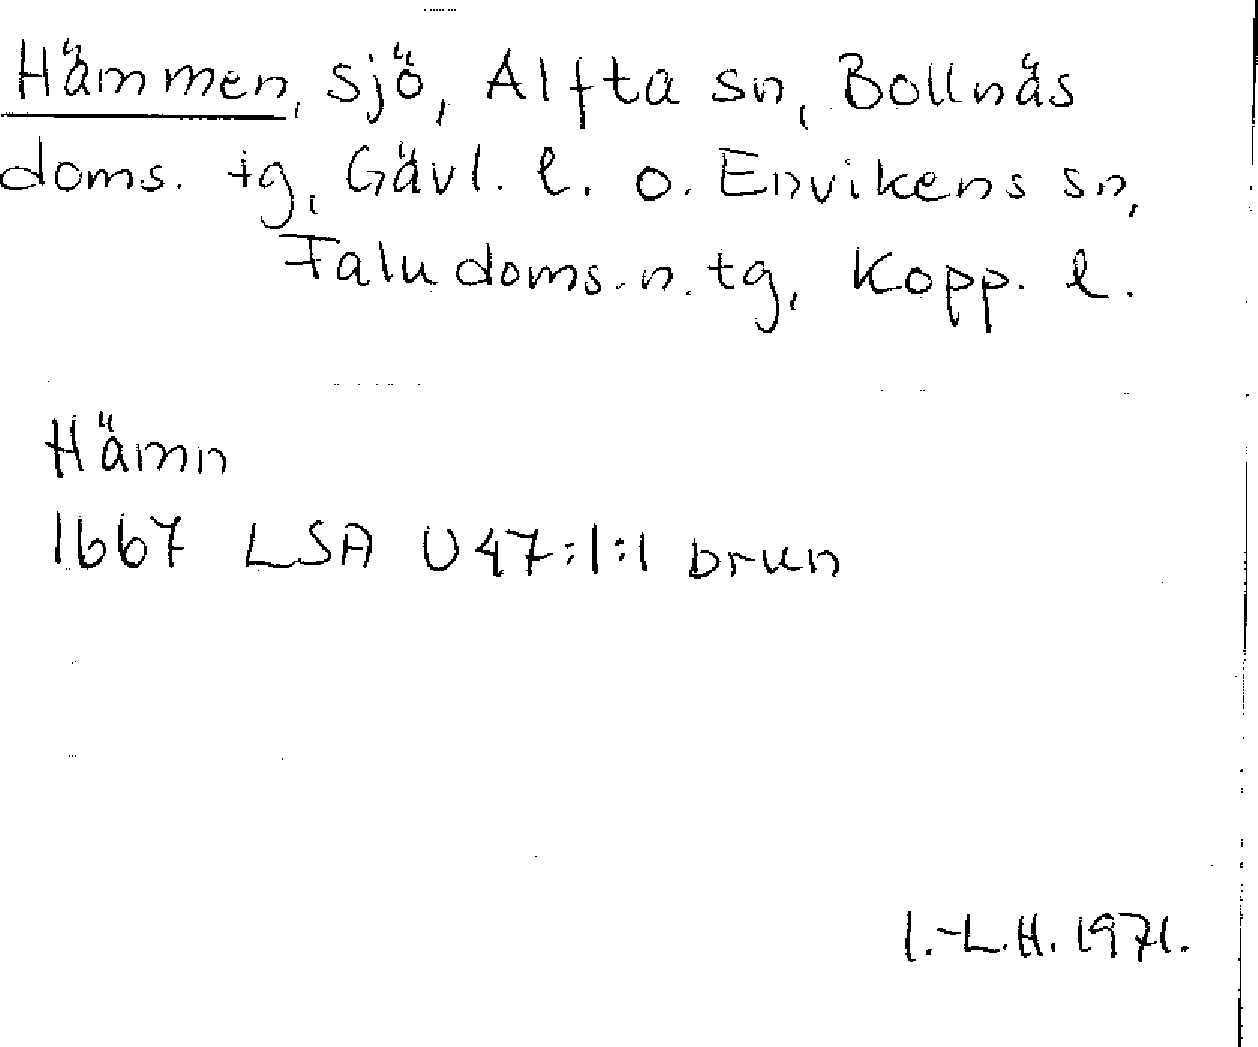 Hämmen, sjö, Alfta sn, Bollnäs
doms. tg, Gävl. l. o. Envikens sn,
Falu doms. n. tg, Kopp. l.
Hämn
1667 LSA U47:1:1 brun
I.-L.H. 1971.